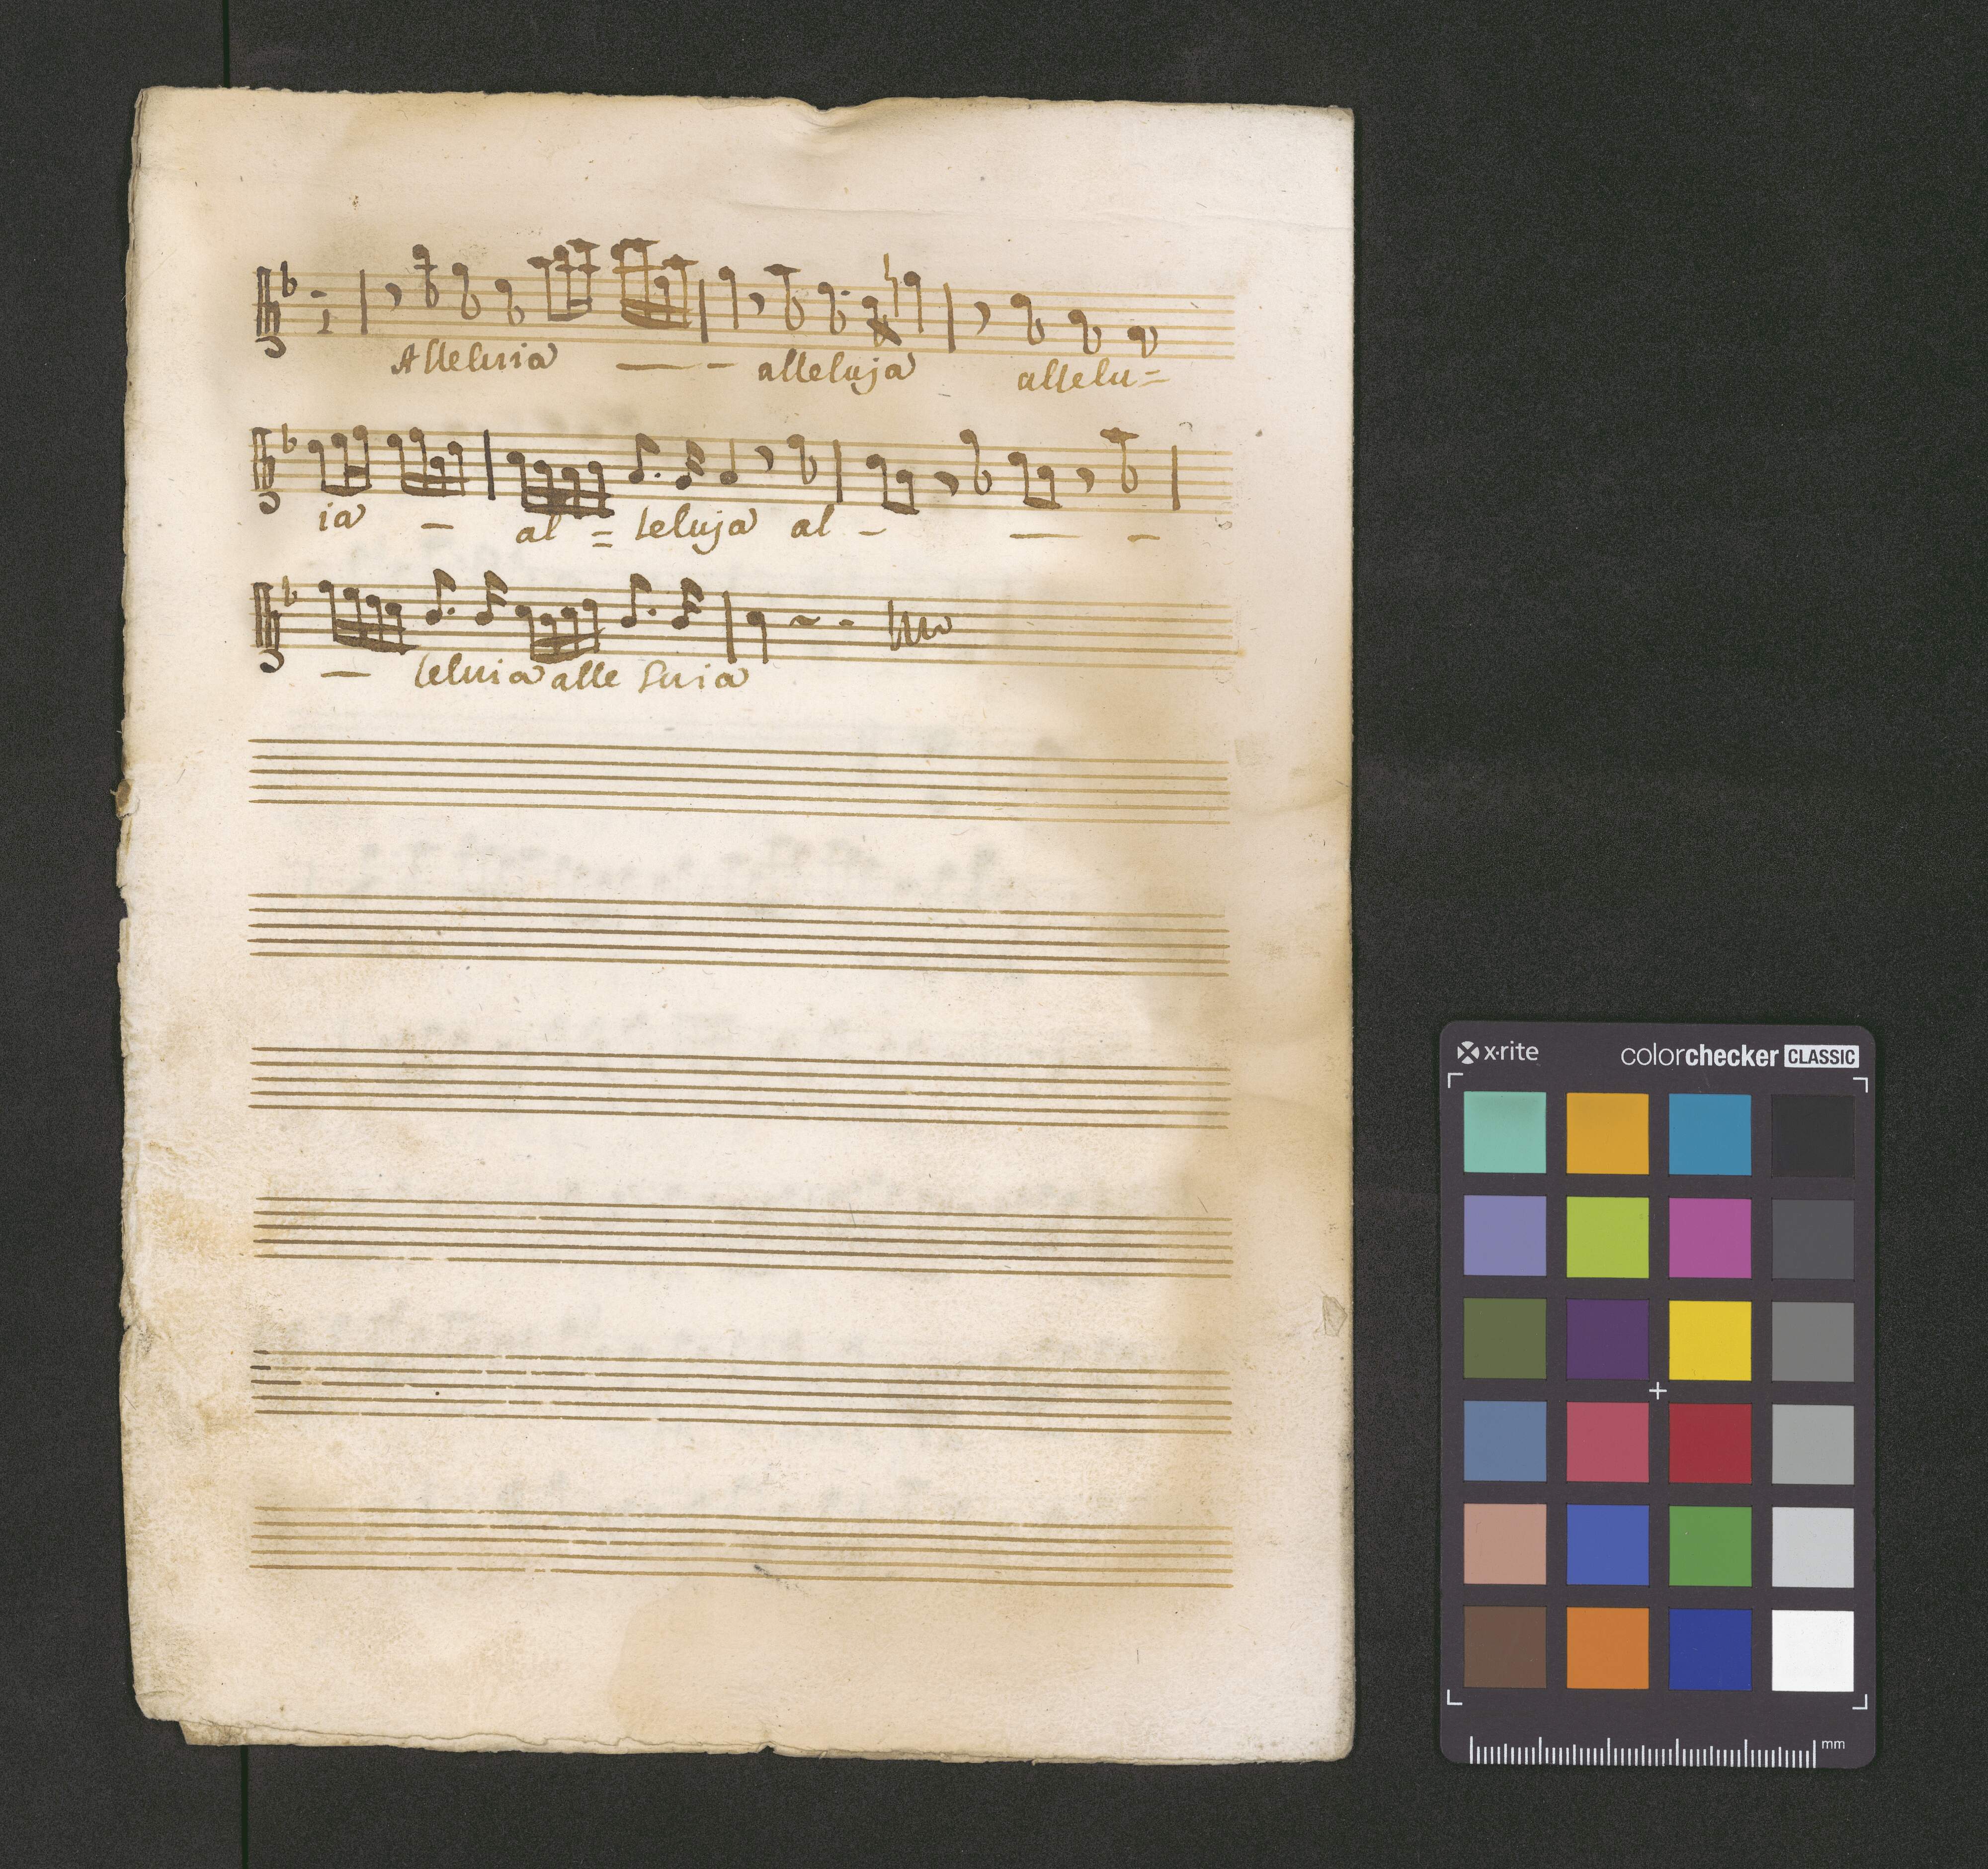 Alleluia — - alleluja allelu=
ia - al = leluja al - — -
— leluia alle luia
x·rite colorchecker CLASSIC
mm